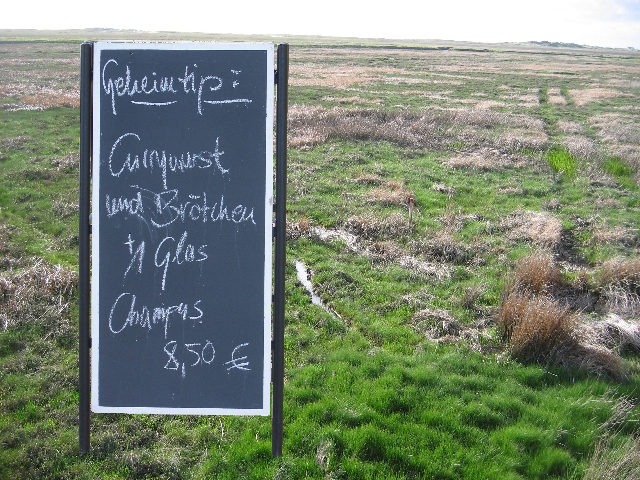 Geheimtip:
Currywurst
und Brötchen
+ 1 Glas
Champus
8,50 €